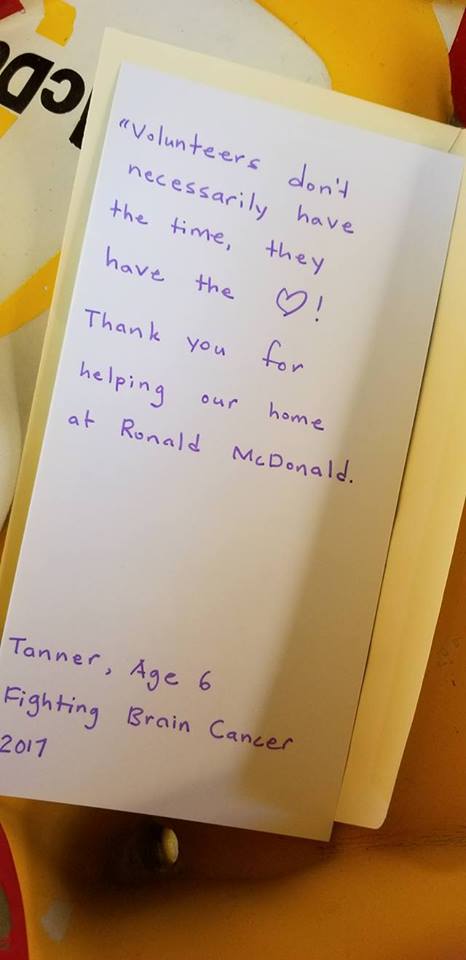 McDo
"Volunteers don't
necessarily have
the time, they
have the ♡!
Thank you for
helping our home
at Ronald McDonald.
Tanner, Age 6
Fighting Brain Cancer
2017